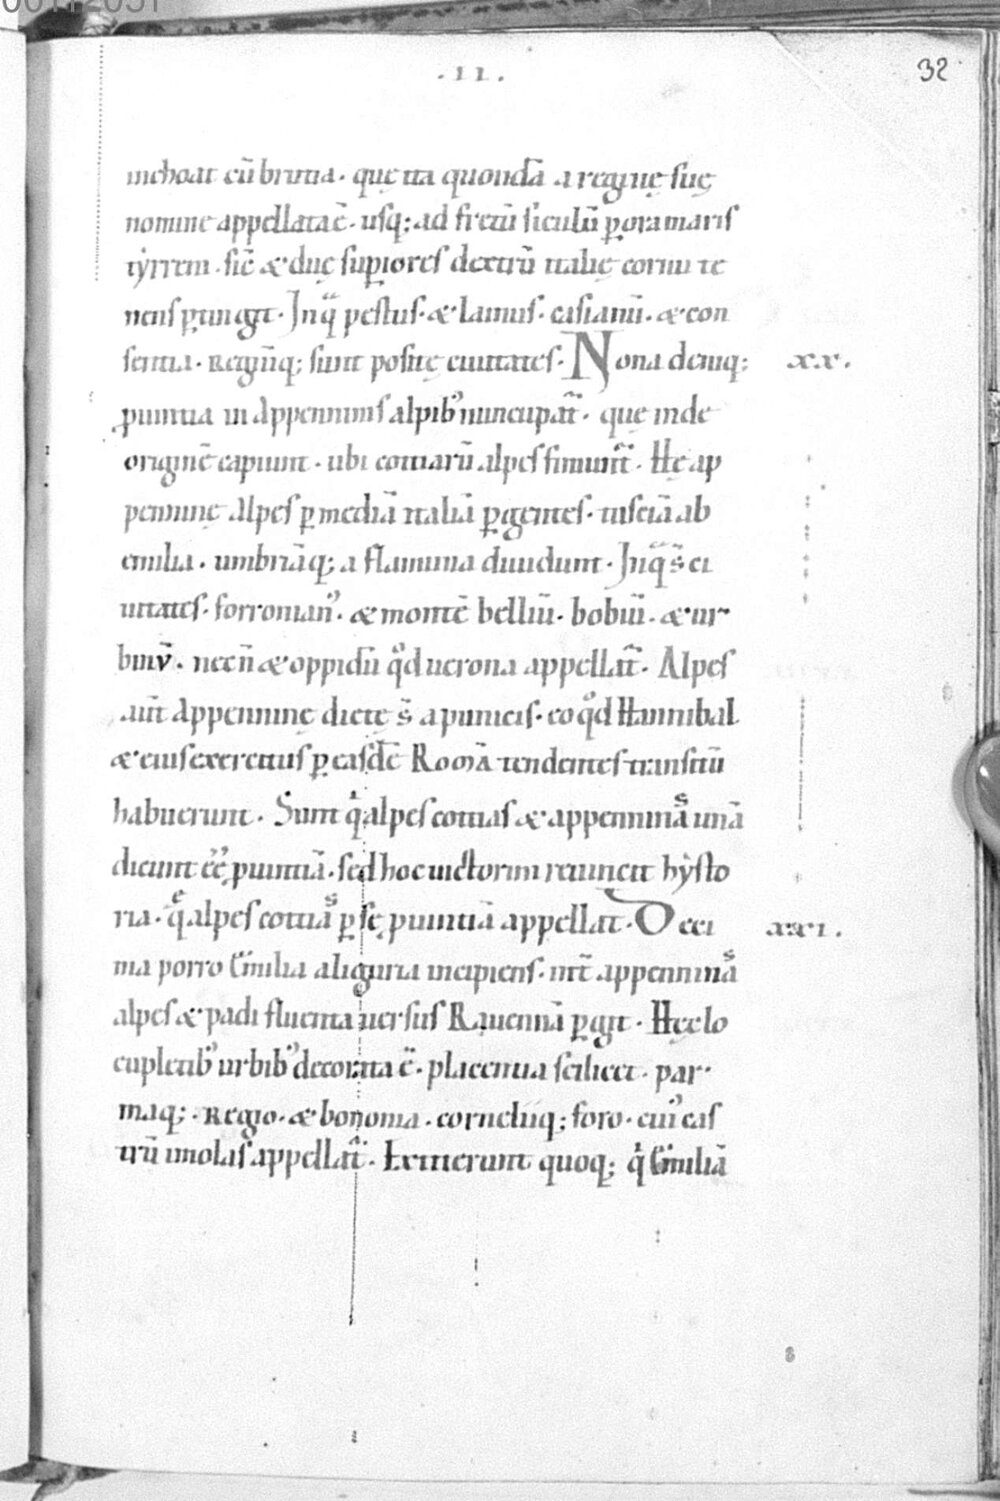 ·II·
32
inchoat cū britia· quę ita quondā a regine suę
nomine appellata ē· usq; ad fretū siculū ꝑ ora maris
tyrreni· sic̄ & duę superiores dextrū italię cornu te
nens ꝑtingit· In q̄ pestus· & lainus· casianū· & con
sentia· Regiūq; sunt positę ciuitates· Nona deniq;
xx·
ꝓuintia in Appenninis alpib; nuncupat̄· quę inde
originē capiunt· ubi cottiarū alpes finiunt̄· Hę ap
penninę Alpes ꝑ mediā italiā ꝑgentes· tusciā ab
emilia· umbriāq; a flaminia diuidunt· In q̄ s̄ ci
uitates· ferronian᾿· & montē belliū· bobiū· & ur
binū· necn̄ & oppidū qͦd uerona appellat̄· Alpes
aut̄ Appenninę dictę s̄ a punicis· eo qͦd Hannibal
& eius exercitus ꝑ easdē Romā tendentes transitū
habuerunt· Sunt qͥ alpes cottias & appenninās unā
dicunt eē ꝓuintiā· sed hoc uictorini reuincit hẏsto
ria· q̄ alpes cottiās ꝑ sę ꝓuintiā appellat· Deci
xxi·
ma porro Emilia a liguria incipiens· int̄ appenninās
alpes & padi fluenta uersus Rauennā ꝑgit· Hęc lo
cupletib; urbib; decorata ē· placentia scilicet· par·
maq;· Regio· & bononia· corneliiq; foro· cui᾿ cas
trū imolas appellat̄· Extiterunt quoq; qͥ Emiliā